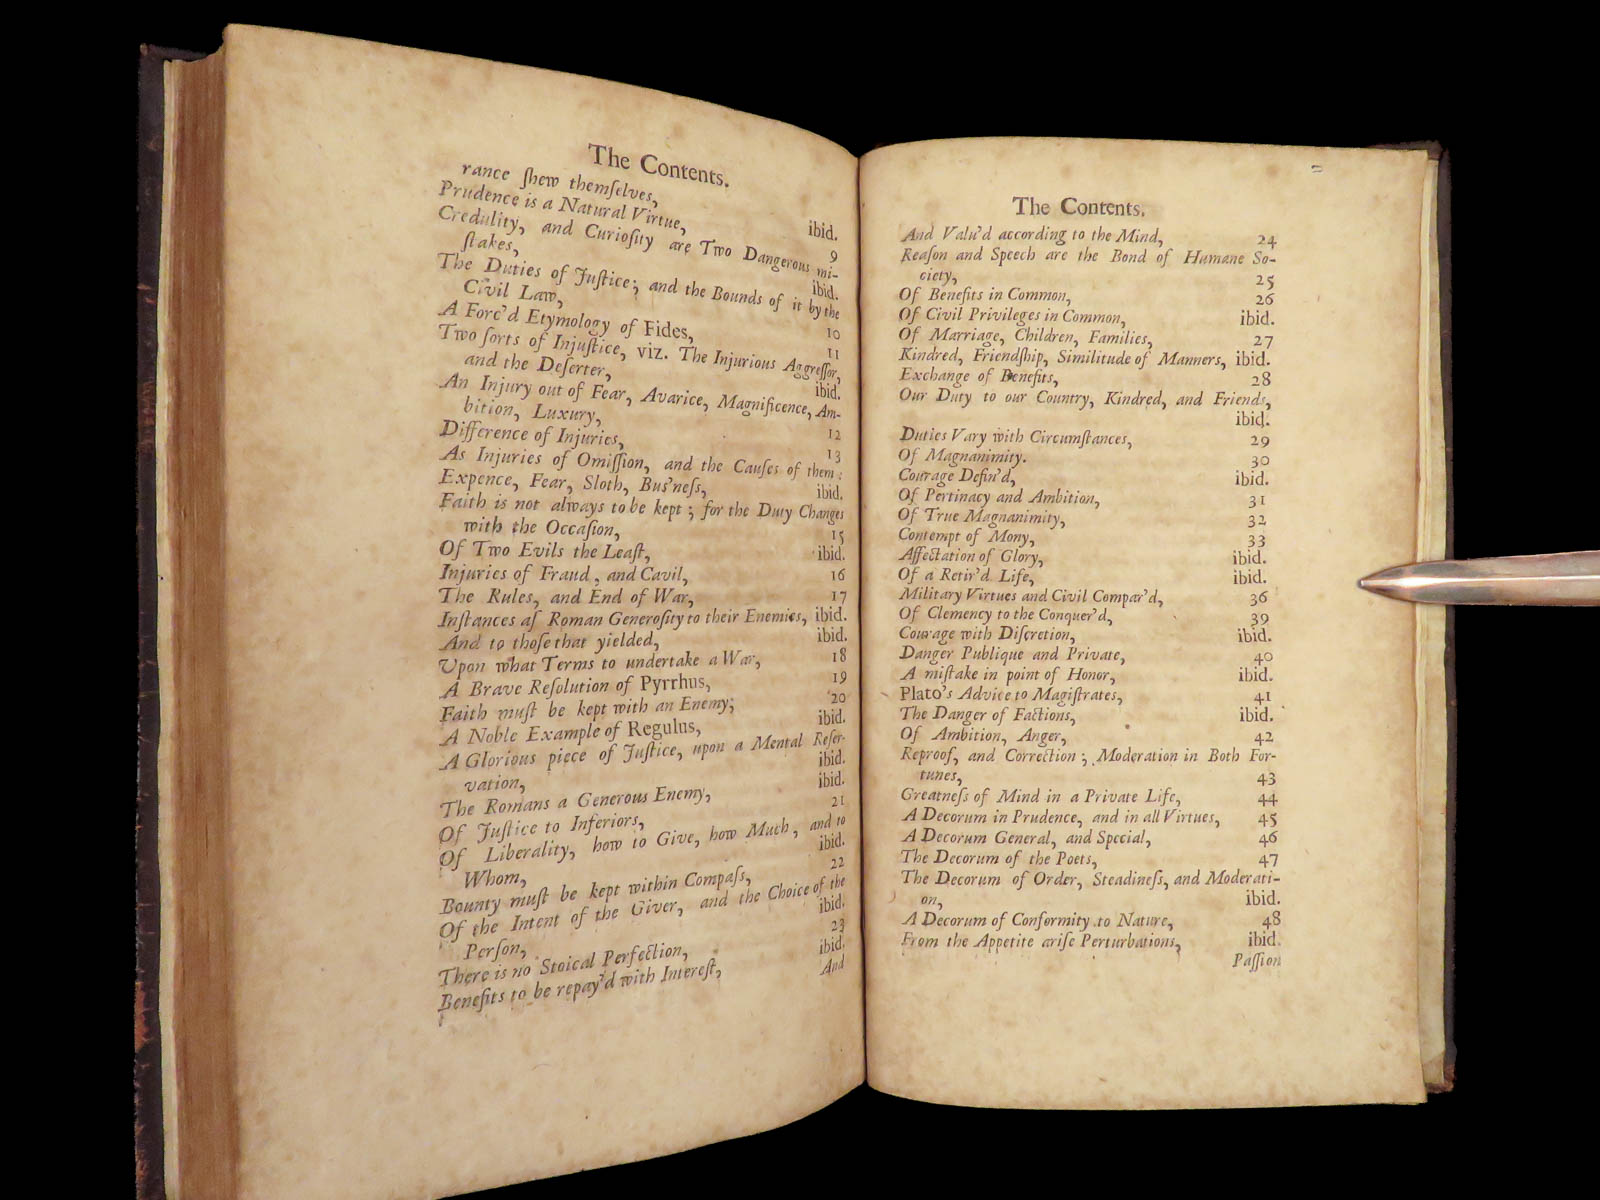 The Contents.
rance ſhew themſelves, ibid.
Prudence is a Natural Virtue, 9
Credulity, and Curioſity are Two Dangerous mi-
ſtakes, ibid.
The Duties of Juſtice; and the Bounds of it by the
Civil Law, 10
A Forc'd Etymology of Fides, 11
Two ſorts of Injuſtice, viz. The Injurious Aggreſſor,
and the Deſerter, ibid.
An Injury out of Fear, Avarice, Magnificence, Am-
bition, Luxury, 12
Difference of Injuries, 13
As Injuries of Omiſſion, and the Cauſes of them:
Expence, Fear, Sloth, Bus'neſs, ibid.
Faith is not always to be kept; for the Duty Changes
with the Occaſion, 15
Of Two Evils the Leaſt, ibid.
Injuries of Fraud, and Cavil, 16
The Rules, and End of War, 17
Inſtances of Roman Generoſity to their Enemies, ibid.
And to thoſe that yielded, ibid.
Upon what Terms to undertake a War, 18
A Brave Reſolution of Pyrrhus, 19
Faith muſt be kept with an Enemy; 20
A Noble Example of Regulus, ibid.
A Glorious piece of Juſtice, upon a Mental Reſer-
vation, ibid.
The Romans a Generous Enemy, ibid.
Of Juſtice to Inferiors, 21
Of Liberality, how to Give, how Much, and to
Whom, ibid.
Bounty muſt be kept within Compaſs, 22
Of the Intent of the Giver, and the Choice of the
Perſon, ibid.
There is no Stoical Perfection, 23
Benefits to be repay'd with Intereſt, ibid.
And
The Contents.
And Valu'd according to the Mind, 24
Reaſon and Speech are the Bond of Humane So-
ciety, 25
Of Benefits in Common, 26
Of Civil Privileges in Common, ibid.
Of Marriage, Children, Families, 27
Kindred, Friendſhip, Similitude of Manners, ibid.
Exchange of Benefits, 28
Our Duty to our Country, Kindred, and Friends,
ibid.
Duties Vary with Circumſtances, 29
Of Magnanimity. 30
Courage Defin'd, ibid.
Of Pertinacy and Ambition, 31
Of True Magnanimity, 32
Contempt of Mony, 33
Affectation of Glory, ibid.
Of a Retir'd Life, ibid.
Military Virtues and Civil Compar'd, 36
Of Clemency to the Conquer'd, 39
Courage with Diſcretion, ibid.
Danger Publique and Private, 40
A miſtake in point of Honor, ibid.
Plato's Advice to Magiſtrates, 41
The Danger of Factions, ibid.
Of Ambition, Anger, 42
Reproof, and Correction; Moderation in Both For-
tunes, 43
Greatneſs of Mind in a Private Life, 44
A Decorum in Prudence, and in all Virtues, 45
A Decorum General, and Special, 46
The Decorum of the Poets, 47
The Decorum of Order, Steadineſs, and Moderati-
on, ibid.
A Decorum of Conformity to Nature, 48
From the Appetite ariſe Perturbations, ibid.
Paſſion